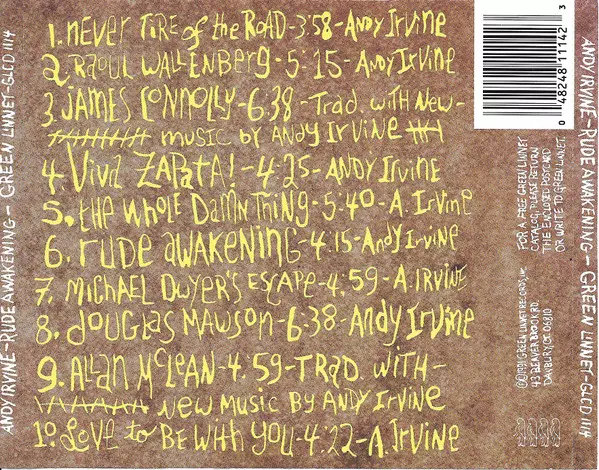 1. Never Tire of the Road-3:58-Andy Irvine
2. Raoul Wallenberg-5:15-Andy Irvine
3. James Connolly-6:38-Trad. with New-
music by Andy Irvine
4. Viva Zapata!-4:25-Andy Irvine
5. the Whole Damn Thing-5:40-A. Irvine
6. rude awakening-4:15-Andy Irvine
7. Michael Dwyer's Escape-4:59-A. Irvine
8. Douglas Mawson-6:38-Andy Irvine
9. Allan McLean-4:59-Trad. with-
New Music by Andy Irvine
10. Love to Be With You-4:22-A. Irvine
0 48248 11142 3
FOR A FREE GREEN LINNET
CATALOG, PLEASE RETURN
THE ENCLOSED POSTCARD
OR WRITE TO GREEN LINNET.
©℗1991 GREEN LINNET RECORDS, INC.
43 BEAVER BROOK RD.
DANBURY, CT. 06810
ANDY IRVINE-RUDE AWAKENING-GREEN LINNET-GLCD 1114
ANDY IRVINE-RUDE AWAKENING-GREEN LINNET-GLCD 1114